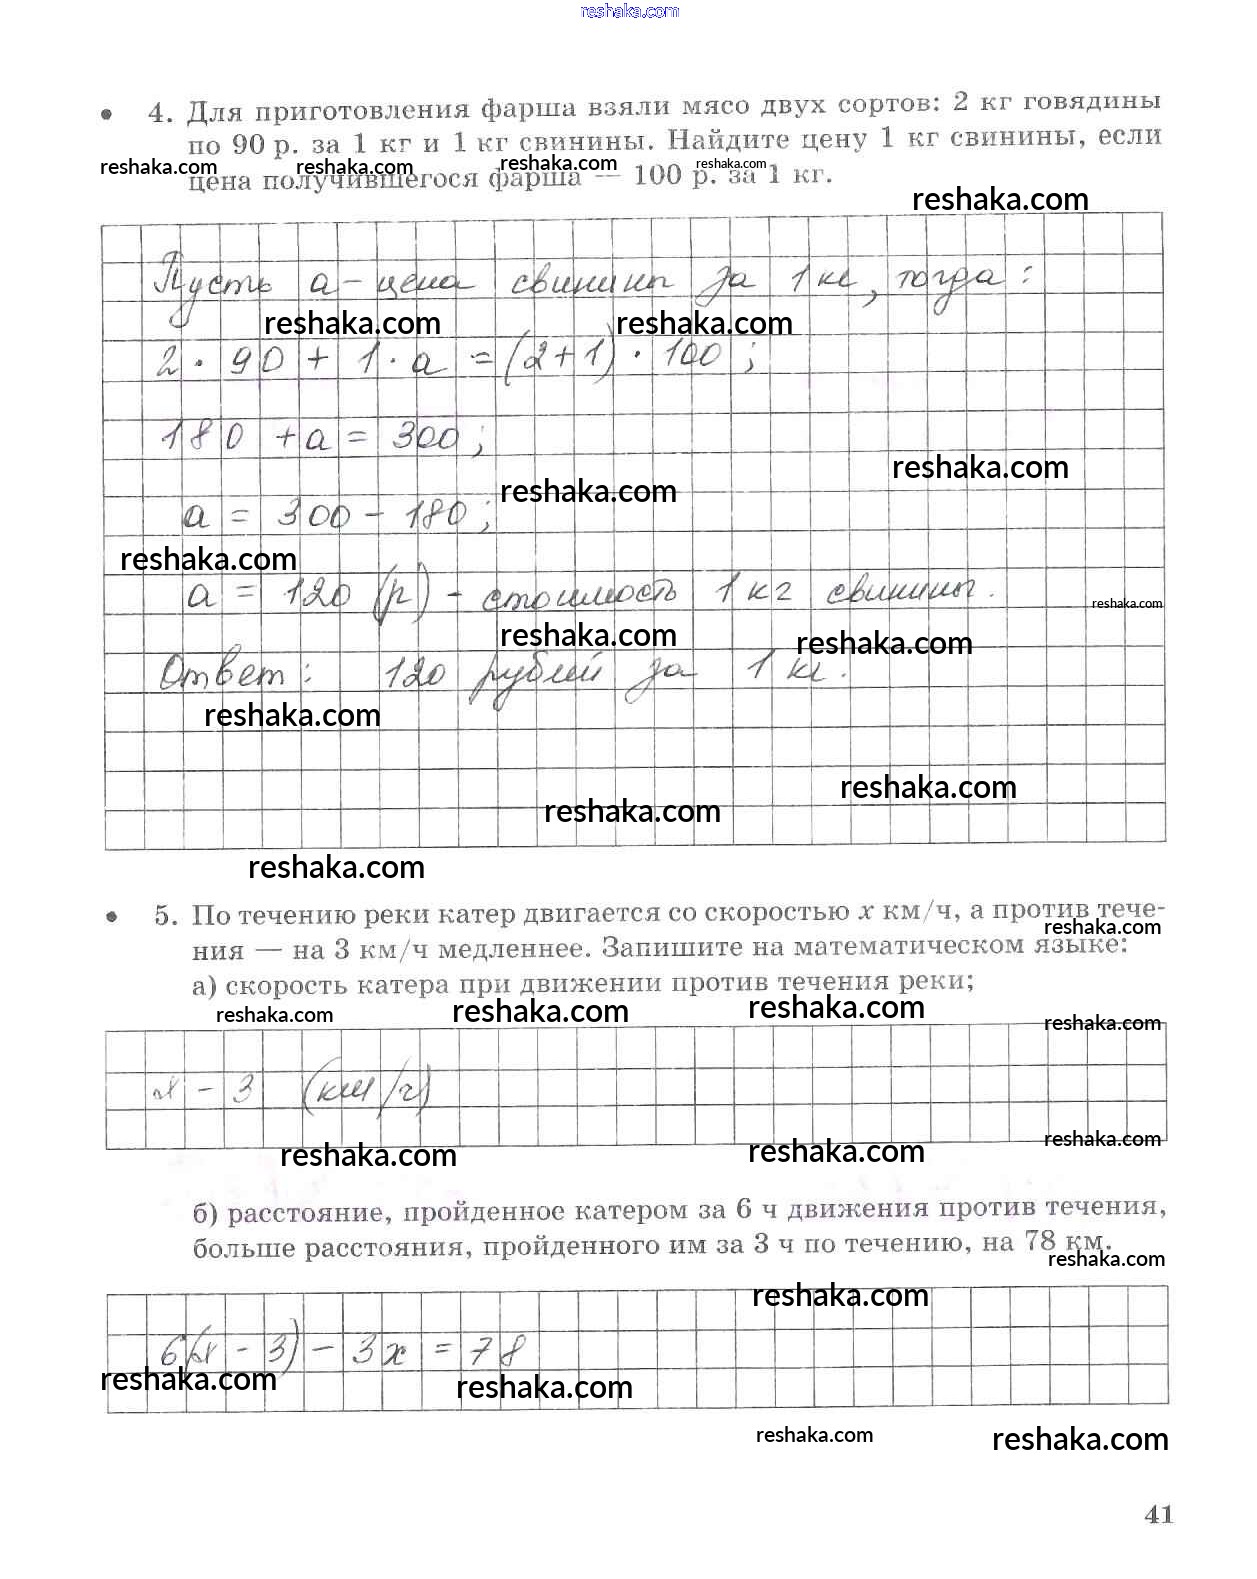 reshaka.com
• 4. Для приготовления фарша взяли мясо двух сортов: 2 кг говядины
по 90 р. за 1 кг и 1 кг свинины. Найдите цену 1 кг свинины, если
reshaka.com reshaka.com reshaka.com reshaka.com
цена получившегося фарша — 100 р. за 1 кг.
reshaka.com
Пусть а - цена свинины за 1 кг, тогда:
reshaka.com reshaka.com
2 · 90 + 1 · а = (2+1) · 100 ;
180 + а = 300 ;
reshaka.com
reshaka.com
а = 300 - 180 ;
reshaka.com
а = 120 (р) - стоимость 1 кг свинины.
reshaka.com
reshaka.com reshaka.com
Ответ: 120 рублей за 1 кг.
reshaka.com
reshaka.com
reshaka.com
reshaka.com
• 5. По течению реки катер двигается со скоростью x км/ч, а против тече-
reshaka.com
ния — на 3 км/ч медленнее. Запишите на математическом языке:
а) скорость катера при движении против течения реки;
reshaka.com reshaka.com reshaka.com
reshaka.com
x - 3 (км/ч)
reshaka.com reshaka.com reshaka.com
б) расстояние, пройденное катером за 6 ч движения против течения,
больше расстояния, пройденного им за 3 ч по течению, на 78 км.
reshaka.com
reshaka.com
6(x - 3) - 3x = 78
reshaka.com reshaka.com
reshaka.com reshaka.com
41